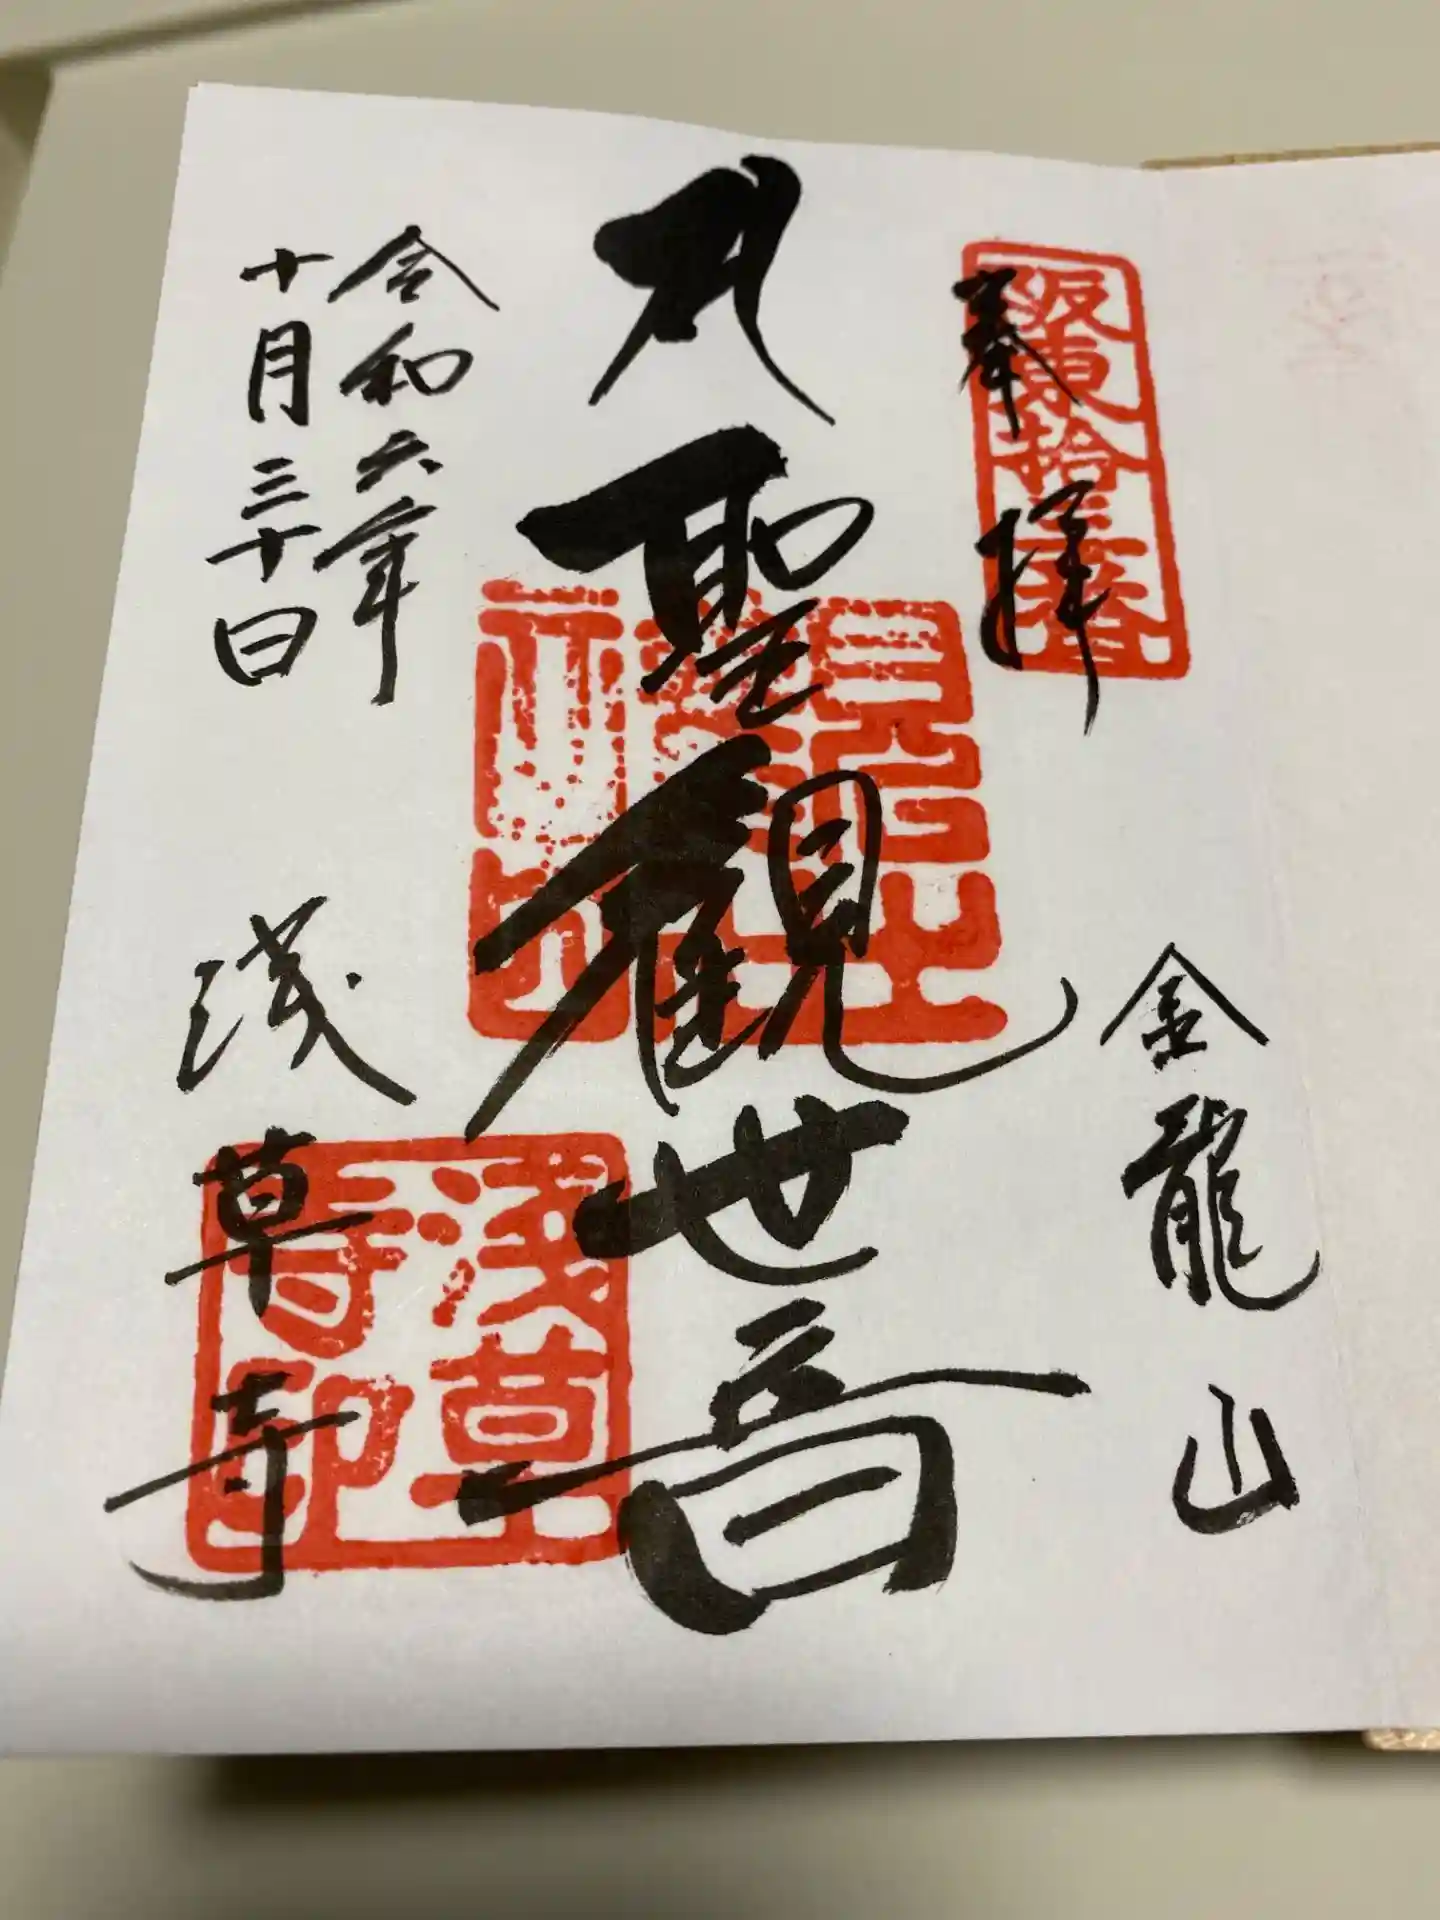 奉拝
坂東拾三番
金龍山
聖観世音
令和六年
十月三十日
浅草寺
浅草寺印